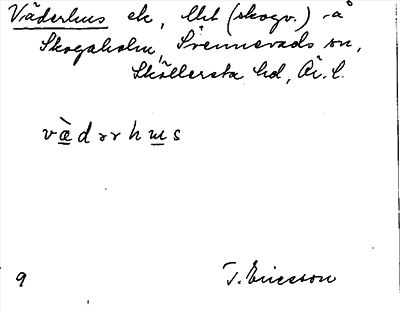 Väderhus ek, lht (skogv.) på
Skogaholm, Svennevads sn,
Sköllersta hd, Ör. l.
v æ̀ d r r h ɯ s
9
T. Ericsson